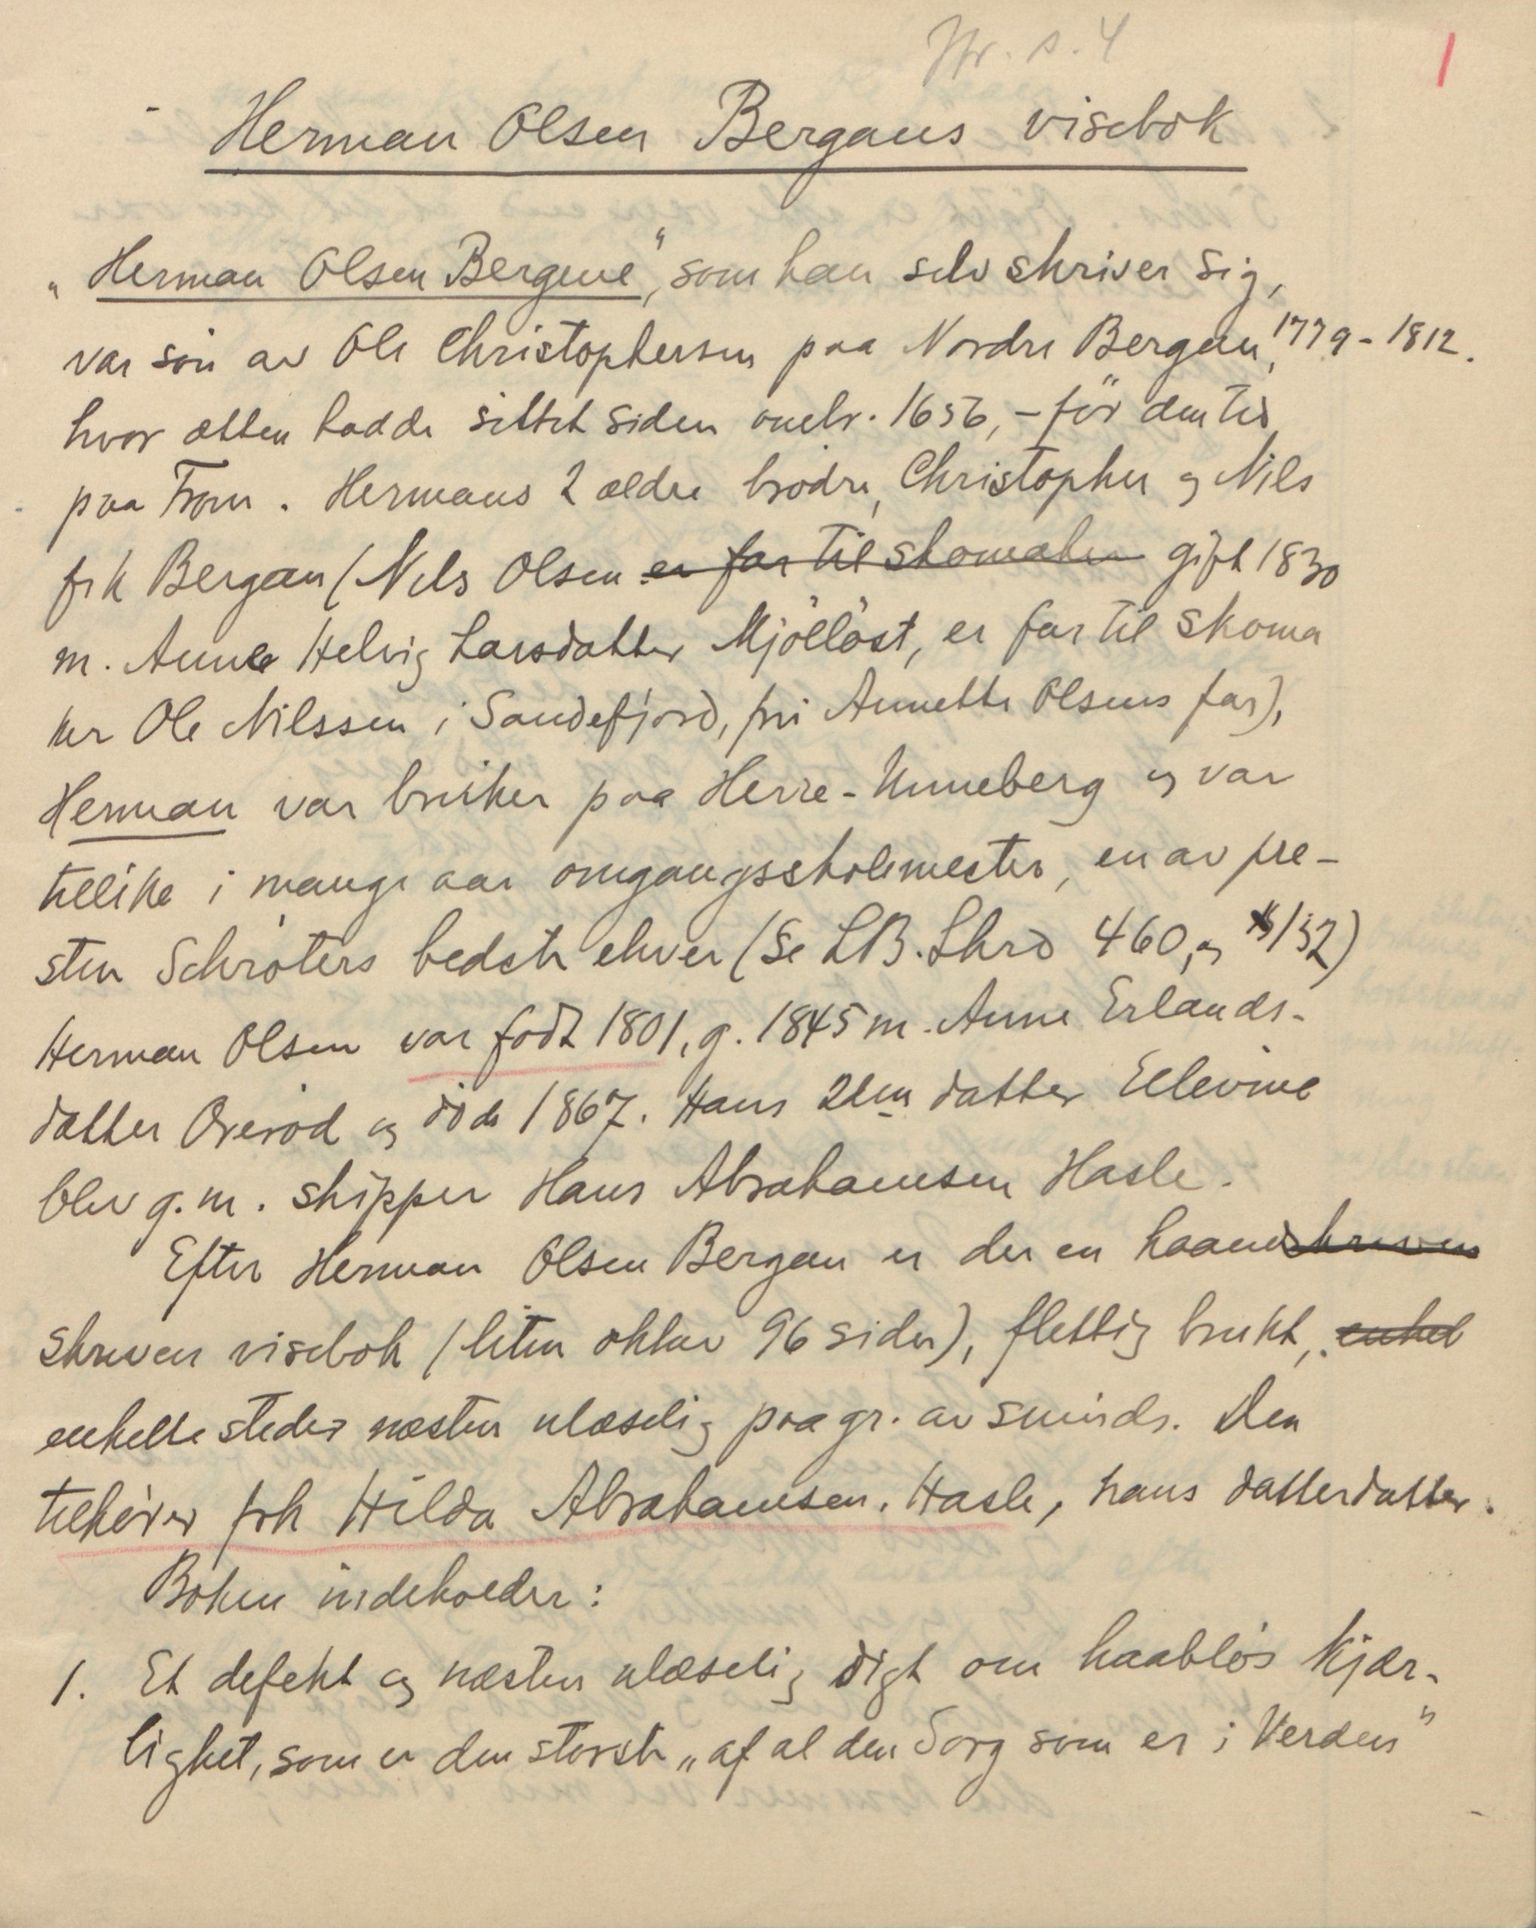 1
Herman Olsen Bergans visebok
„Herman Olsen Bergene", som han selv skriver sig,
var søn av Ole Christophersen paa Nordre Bergan, 1779-1812.
hvor ætten hadde sittet siden omtr. 1656, - før den tid
paa Fron. Hermans 2 ældre brødre, Christopher og Nils
fik Bergan (Nils Olsen er far til skomaker gift 1830
m. Anne Helvig Larsdatter Mjølløst, er far til skoma
ker Ole Nilssen i Sandefjord, frk Annette Olsens far),
Herman var bruker paa Herre-Unneberg og var
tillike i mange aar omgangsskolemester, en av pre-
sten Schrøters bedste elever (Se LB. Skrd 460, og /32)
Herman Olsen var født 1801, g. 1845 m. Anne Erlands-
datter Orerød og døde 1867. Hans 2den datter Ellevine
blev g. m. skipper Hans Abrahamsen Hasle.
Efter Herman Olsen Bergan er der en haandskreven
skreven visebok (liten oktav 96 sider), flittig brukt, enkel
enkelte steder næsten ulæselig paa gr. av smuds. Den
tilhører frk Hilda Abrahamsen. Hasle, hans datterdatter.
Boken indeholder:
1. Et defekt og næsten ulæselig digt om haabløs kjær-
lighet, som er den største „af al den Sorg som er i Verden"